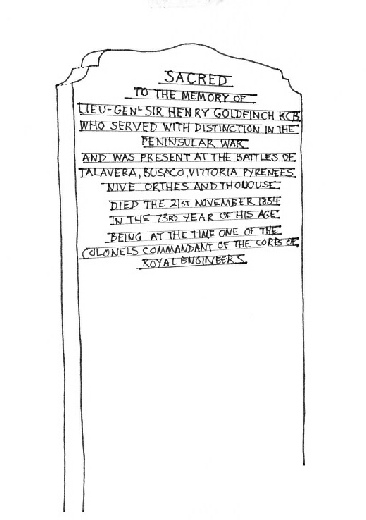 SACRED
TO THE MEMORY OF
LIEU-GEN-SIR HENRY GOLDFINCH KCB
WHO SERVED WITH DISTINCTION IN THE
PENINSULAR WAR
AND WAS PRESENT AT THE BATTLES OF
TALAVERA, BUSACO, VITTORIA PYRENEES
NIVE ORTHES AND THOUOUSE
DIED THE 21ST NOVEMBER 1854
IN THE 73RD YEAR OF HIS AGE
BEING AT THE TIME ONE OF THE
COLONELS COMMANDANT OF THE CORPS OF
ROYAL ENGINEERS